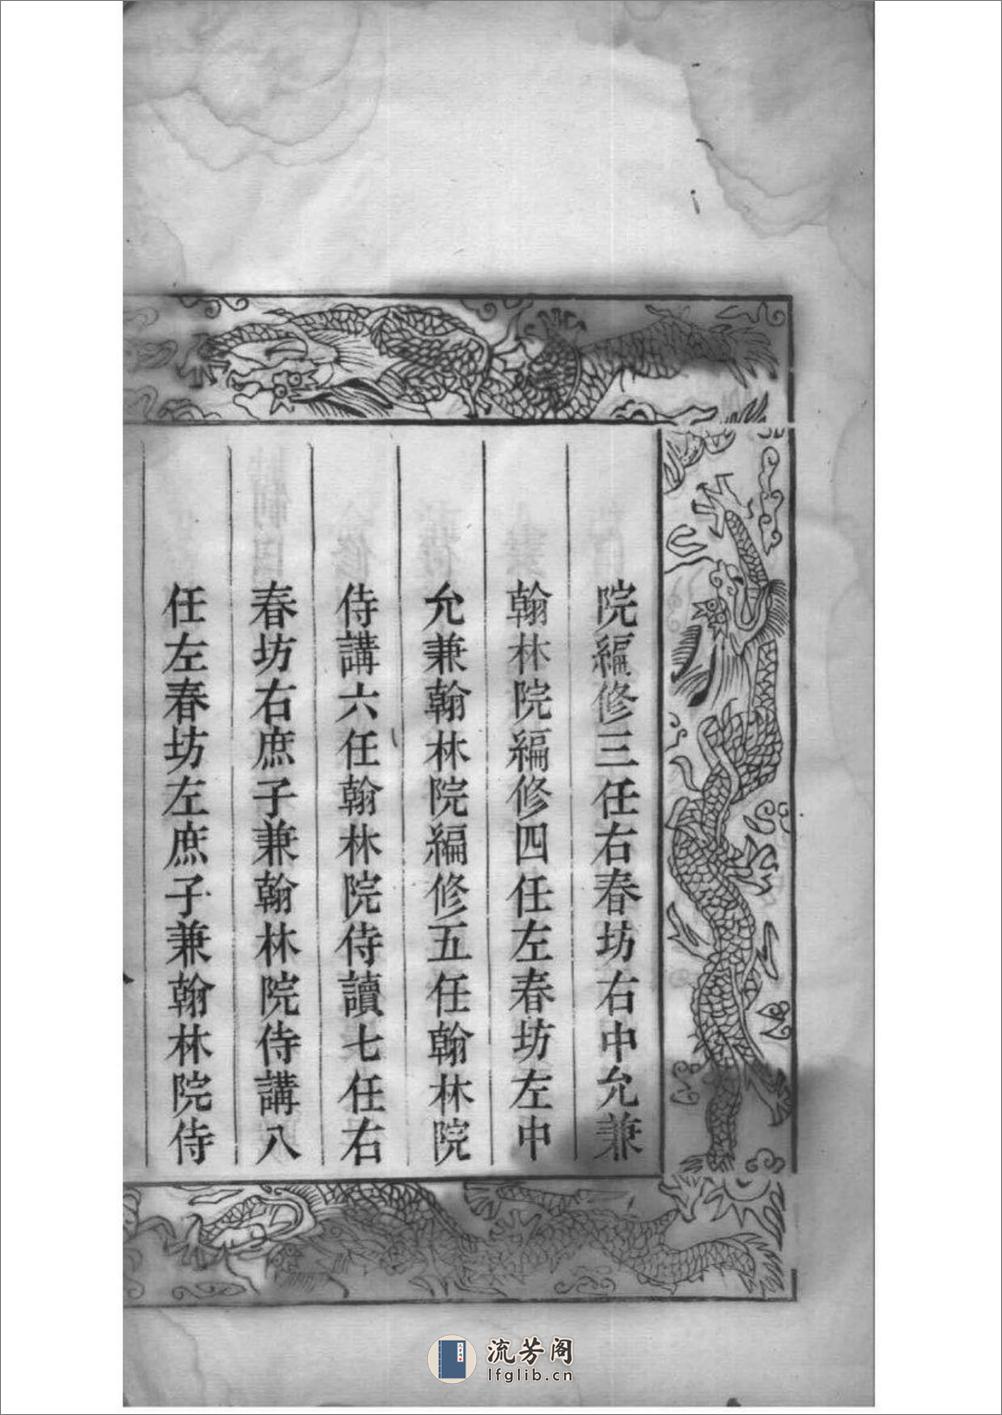 院編修三任右春坊右中允兼
翰林院編修四任左春坊左中
允兼翰林院編修五任翰林院
侍講六任翰林院侍讀七任右
春坊右庶子兼翰林院侍講八
任左春坊左庶子兼翰林院侍
流芳阁
lfglib.cn